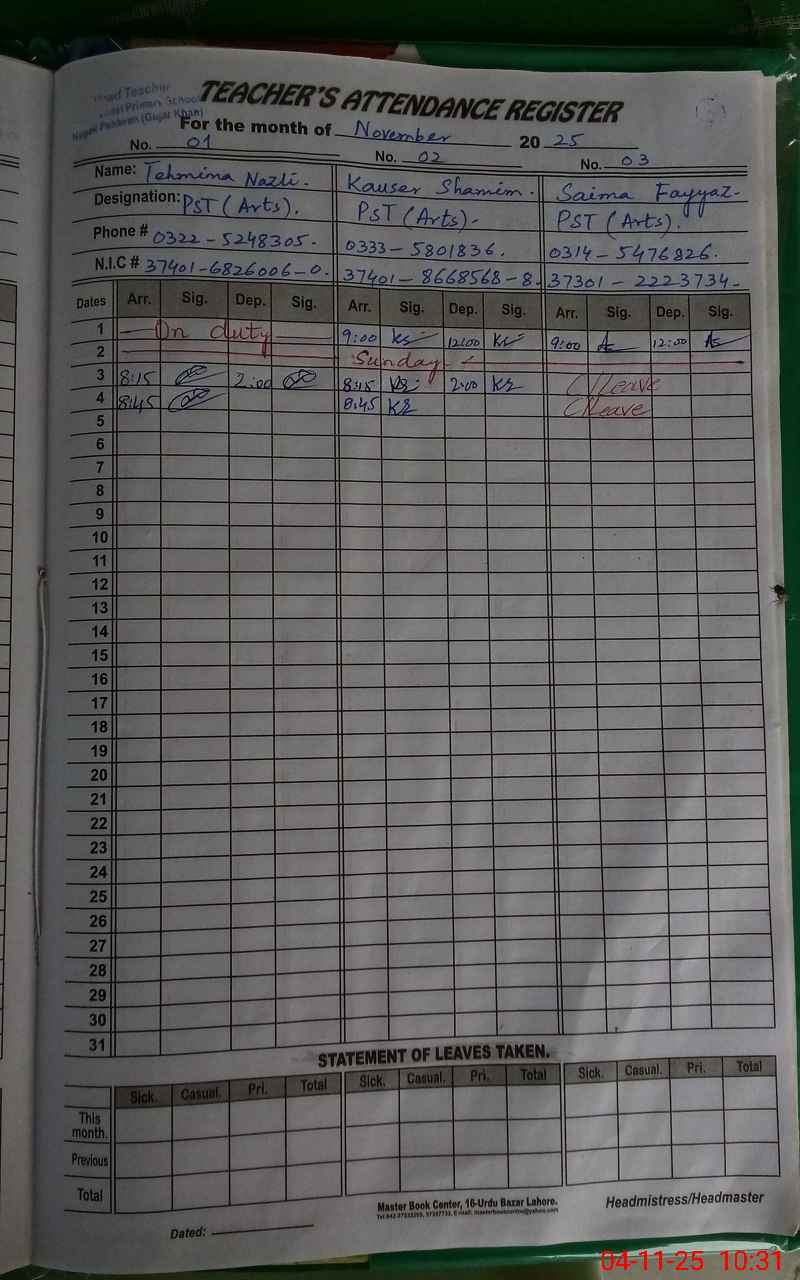 Head Teacher
Primary School
(Gujar Khan)
TEACHER'S ATTENDANCE REGISTER
For the month of November 2025
No. 01 No. 02 No. 03
Name: Tehmina Nazli. Kauser Shamim. Saima Fayyaz.
Designation: PST (Arts). PST (Arts). PST (Arts).
Phone # 0322-5248305. 0333-5801836. 0314-5476826.
N.I.C # 37401-6826006-0. 37401-8668568-8. 37301-2223734-
Dates Arr. Sig. Dep. Sig. Arr. Sig. Dep. Sig. Arr. Sig. Dep. Sig.
1 On duty 9:00 Ks 12:00 Ks 9:00 12:00
2 Sunday
3 8:15 2:00 8:15 KS 2:00 KS C/leave
4 8:45 8:45 KS C/leave
5
6
7
8
9
10
11
12
13
14
15
16
17
18
19
20
21
22
23
24
25
26
27
28
29
30
31
STATEMENT OF LEAVES TAKEN.
Sick. Casual. Pri. Total Sick. Casual. Pri. Total Sick. Casual. Pri. Total
This month.
Previous
Total
Master Book Center, 16-Urdu Bazar Lahore.
Headmistress/Headmaster
Dated:
04-11-25 10:31